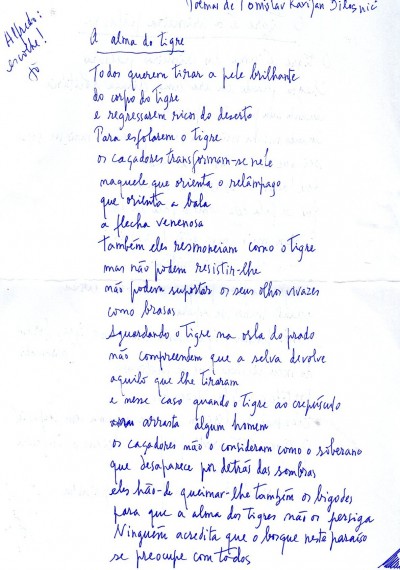 Poemas de Tomislav Marijan Bilosnić
Alfredo:
escolhe!
A alma do tigre
Todos querem tirar a pele brilhante
do corpo do tigre
e regressarem ricos do deserto
Para esfolarem o tigre
os caçadores transformam-se nele
naquele que orienta o relâmpago
que orienta a bala
a flecha venenosa
também eles resmoneiam como o tigre
mas não podem resistir-lhe
não podem suportar os seus olhos vivazes
como brasas
Aguardando o tigre na orla do prado
não compreendem que a selva devolve
aquilo que lhe tiraram
e nesse caso quando o tigre ao crepúsculo
arrasta algum homem
os caçadores não o consideram como o soberano
que desaparece por detrás das sombras
eles hão-de queimar-lhe também os bigodes
para que a alma dos tigres não os persiga
Ninguém acredita que o bosque neste paraíso
se preocupe com todos